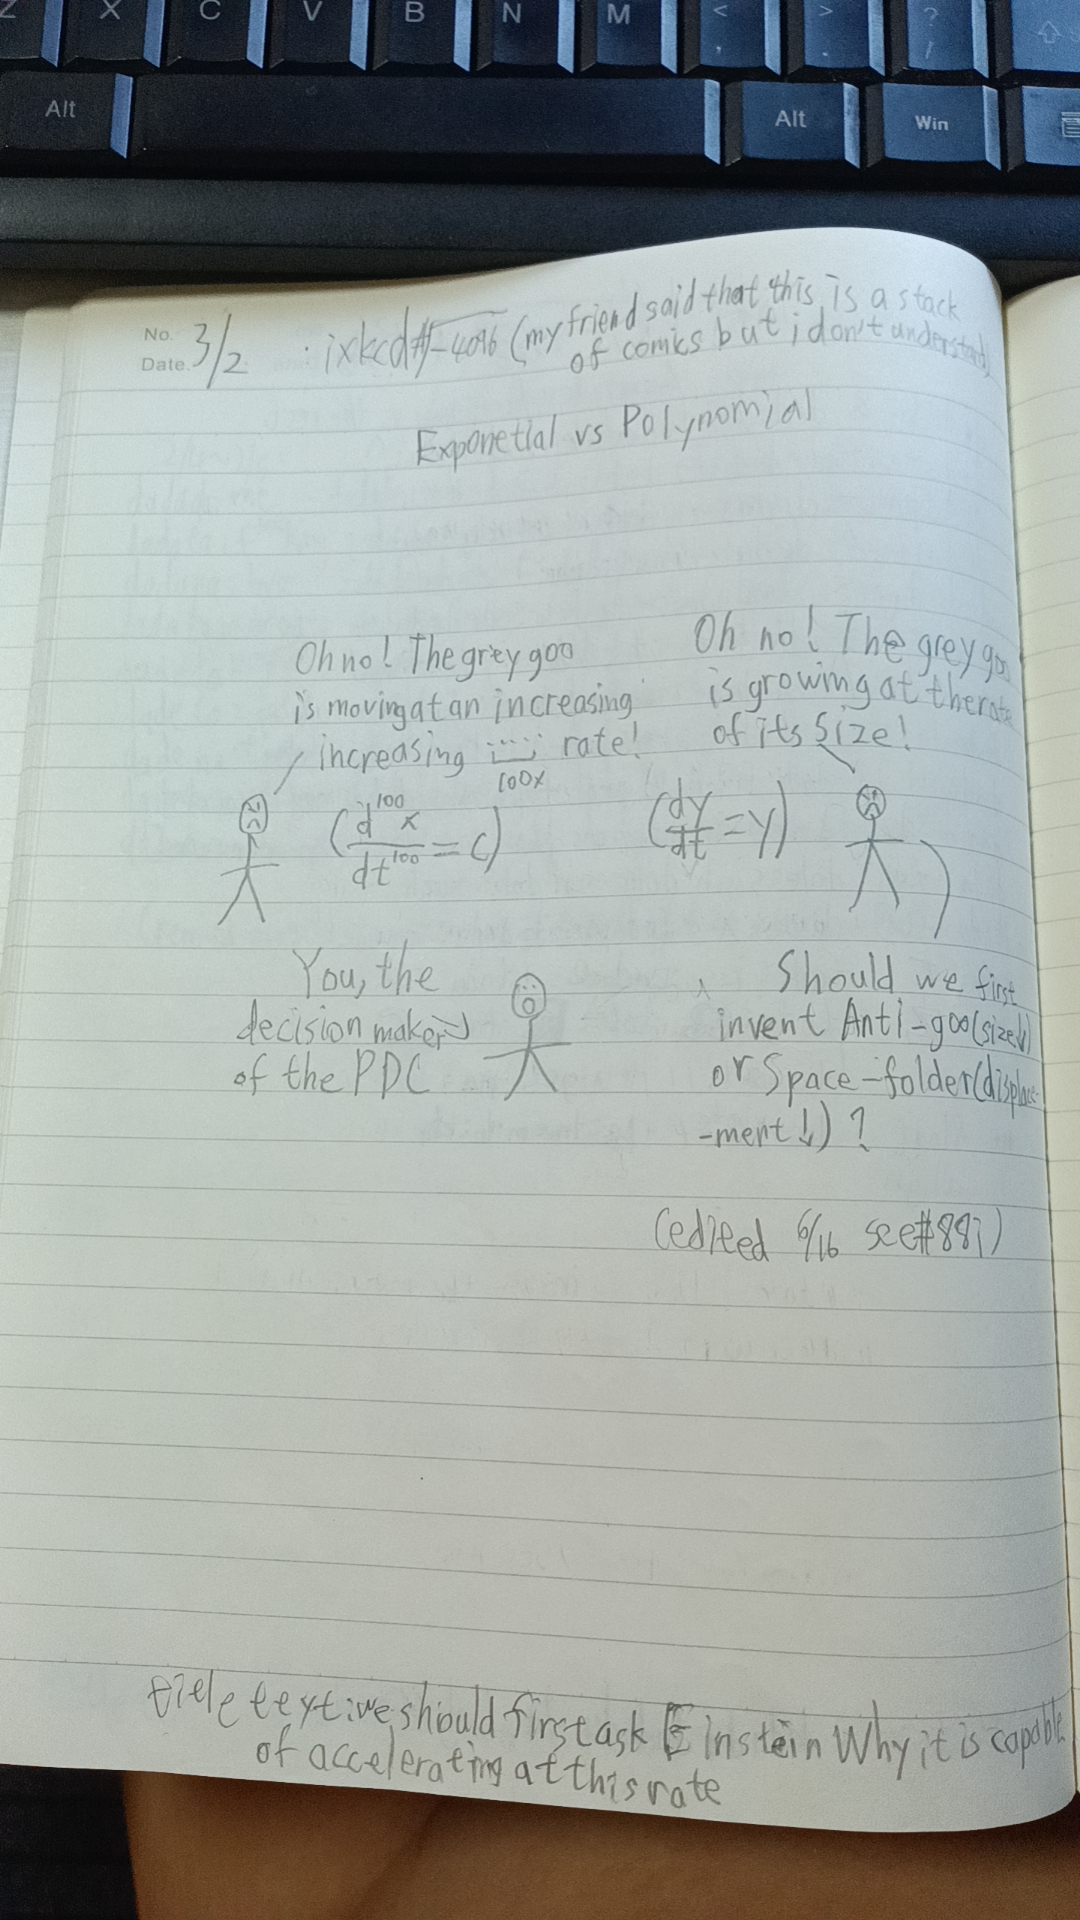 Z X C V B N M < , > . ? /
Alt Alt Win
No.
Date.
3/2
ixkcd#√-4096 (my friend said that this is a stack
of comics but i don't understand)
Exponetial vs Polynomial
Oh no! The grey goo
is moving at an increasing
increasing ... rate!
100x
(d¹⁰⁰x/dt¹⁰⁰=c)
Oh no! The grey goo
is growing at the rate
of its size!
(dy/dt=y)
You, the
decision maker
of the PDC
Should we first
invent Anti-goo(size↓)
or Space-folder(displace
-ment↓)?
(edited 6/16 see#88i)
title text: we should first ask Einstein Why it is capable
of accelerating at this rate